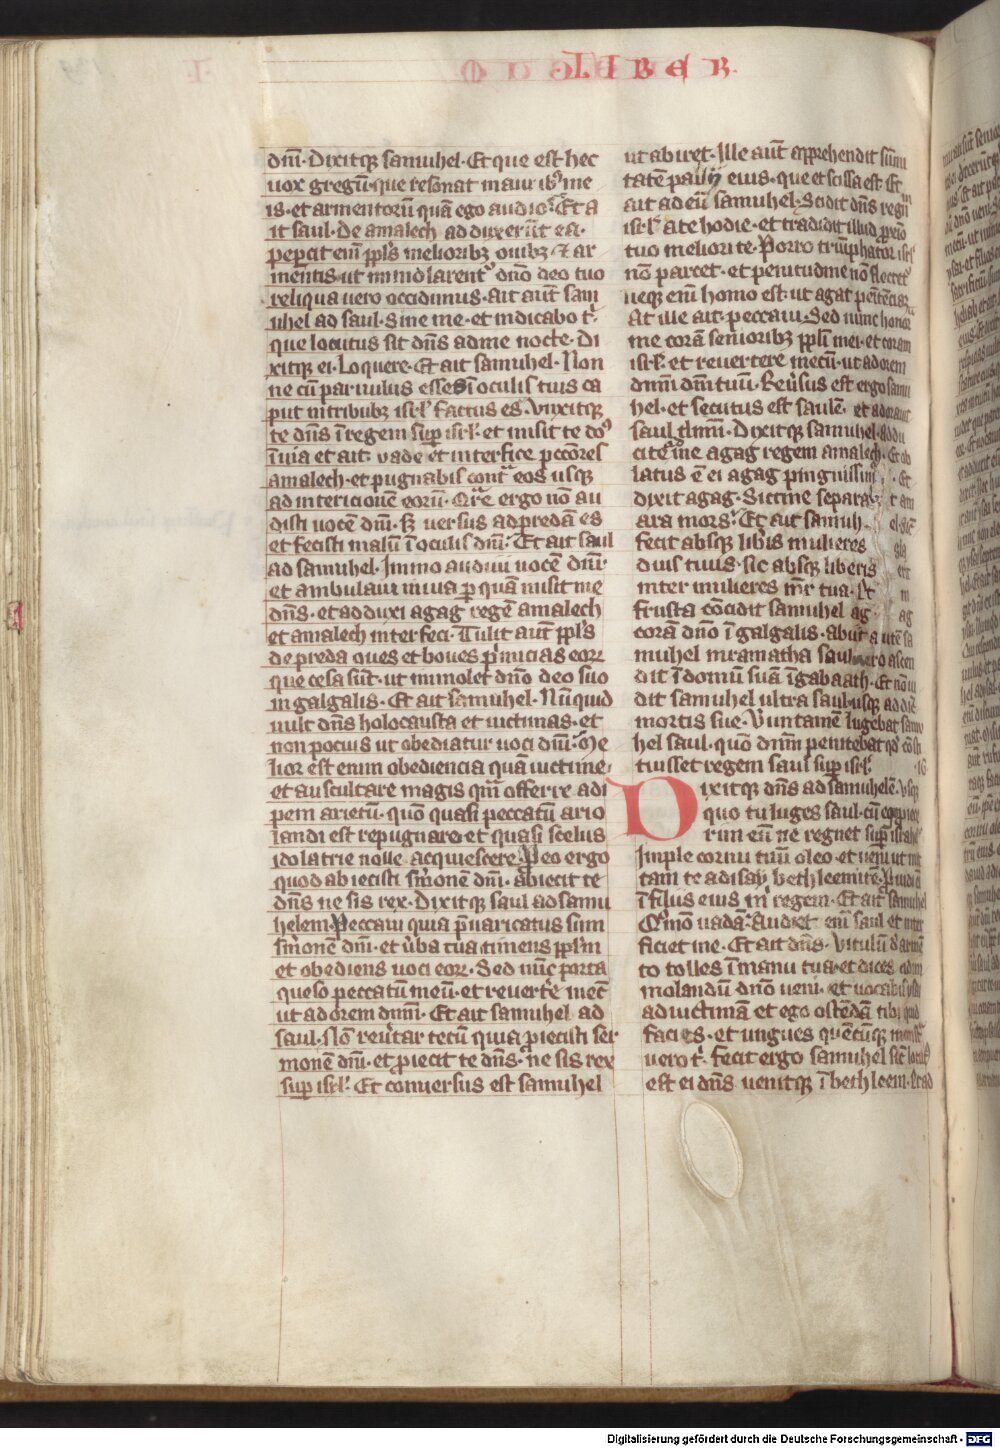 LIBER
dm̄. Dixitqꝫ samuhel. Et que est hec
uox gregū. que resonat in auribꝫ me
is. et armentorū quā ego audio. Et a
it saul. De amalech adduxerūt ea.
pepercit em̄ ppl̄s melioribꝫ ouibꝫ et ar
mentis. ut immolarent᷑ dn̄o deo tuo
reliqua uero occidimus. Ait aūt sam
uhel ad saul. Sine me. et indicabo t̄.
que locutus sit dn̄s ad me nocte. Di
xitqꝫ ei. Loquere. Et ait samuhel. Non
ne cū paruulus esses in oculis tuis ca
put in tribubꝫ isrl̄ factus es. Vnxitqꝫ
te dn̄s ī regem suꝑ isrl̄. et misit te dn̄s
ī uia et ait. vade et interfice peccōres
amalech. et pugnabis cont̄ eos usqꝫ
ad internicionē eorū. Qr̄e ergo nō au
disti uocē dm̄. sꝫ uersus ad predā es
et fecisti malū ī oculis dm̄. Et ait saul
ad samuhel. Immo audiui uocē dm̄.
et ambulaui in uia ꝑ quā misit me
dn̄s. et adduxi agag regē amalech
et amalech interfeci. Tulit aūt ppl̄s
de preda oues et boues p̄micias eoꝝ
que cesa sūt. ut immolet dn̄o deo suo
in galgalis. Et ait samuhel. Nūquid
uult dn̄s holocausta et uictimas. et
non pocius ut obediatur uoci dm̄. Me
lior est enim obediencia quā uictime.
et auscultare magis qm̄ offerre adi
pem arietū. quō quasi peccatū ario
landi est repugnare. et quasi scelus
idolatrie nolle acquiescere. Pro eo ergo
quod abiecisti sm̄onē dm̄. abiecit te
dn̄s ne sis rex. Dixitqꝫ saul ad samu
helem. Peccaui quia p̄uaricatus sum
sm̄onē dm̄. et ūba tua timens ppl̄m
et obediens uoci eoꝝ. Sed nūc porta
queso peccatū meū. et reuert̄e mecū
ut adorem dm̄m. Et ait samuhel ad
saul. Nō reūtar tecū quia ꝓiecisti ser
monē dm̄. et ꝓiecit te dn̄s. ne sis rex
suꝑ isrl̄. Et conuersus est samuhel
ut abiret. Ille aūt apprehendit sūmi
tatē pallij eius. que et scissa est. Et
ait ad eū samuhel. Scidit dn̄s regn̄
isrl̄ a te hodie. et tradidit illud ꝓximo
tuo meliori te. Porro triūphator isrl̄
nō parcet. et penitudine nō flectet᷑
neqꝫ em̄ homo est. ut agat penitēciā.
At ille ait. peccaui. Sed nunc honora
me corā senioribꝫ ppl̄i mei. et coram
isrl̄. et reuertere mecū. ut adorem
dm̄m dm̄ tuū. Reūsus est ergo samu
hel. et secutus est saulē. et adorauit
saul dm̄m. Dixitqꝫ samuhel. addu
cite m̄ agag regem amalech. Et ob
latus ē ei agag pinguissim Et
dixit agag. Siccine separat am
ara mors. Et ait samuh el sic
fecit absqꝫ lib̄is mulieres gla
dius tuus. sic absqꝫ liberis ert
inter mulieres mr̄ tua. Et in
frusta cōcidit samuhel ag ag
corā dn̄o ī galgalis. Abiit aūtē sa
muhel in ramatha. saul uero ascen
dit ī domū suā ī gabaath. Et nō ui
dit samuhel ultra saul. usqꝫ ad diē
mortis sue. Verūtamē lugebat samu
hel saul. quō dm̄m penitebat qd̄ cōsti
tuisset regem saul suꝑ isrl̄. 16
Dixitqꝫ dn̄s ad samuhelē. Vsqꝫ
quo tu luges saul. cū ego ꝓiece
rim eū ne regnet suꝑ israhel
Imple cornu tuū oleo. et ueni ut mit
tam te ad isay bethleemitē. Prouidi ē
ī filiis eius m̄ regem. Et ait samuhel
Qm̄o uadā. Audiet em̄ saul et inter
ficiet me. Et ait dn̄s. Vitulū d̄ armē
to tolles ī manu tua. et dices ad im
molandū dn̄o ueni. et uocabis ysai
ad uictimā et ego ostēdā tibi quid
facies. et ungues quēcūqꝫ monst̄
uero t̄. Fecit ergo samuhel sic̄ locut᷑
est ei dn̄s. uenitqꝫ ī bethleem. Et ad
Digitalisierung gefördert durch die Deutsche Forschungsgemeinschaft - DFG